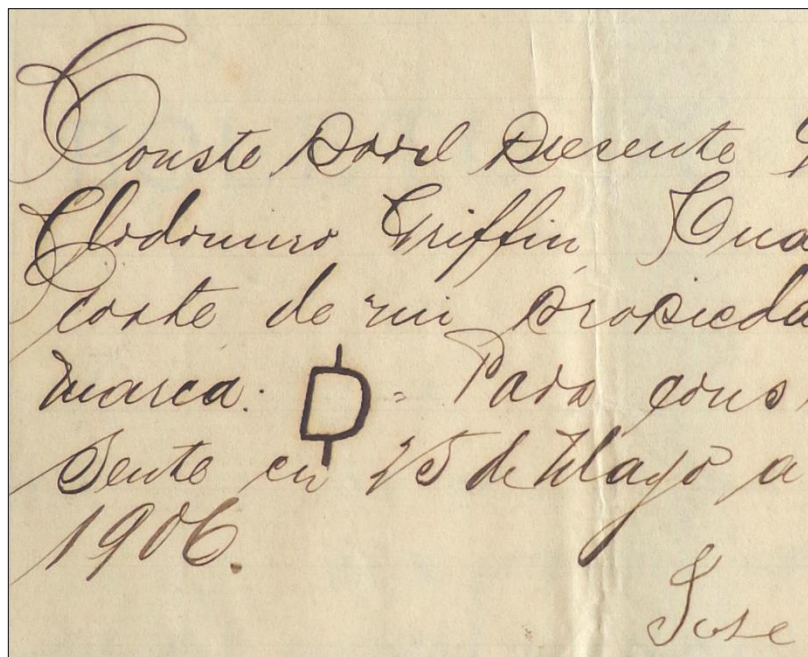 Conste por el presente
Clodomiro Griffin,
corte de mi propieda
marca: D = Para cons
sente en 25 de Mayo a
1906.
Jose